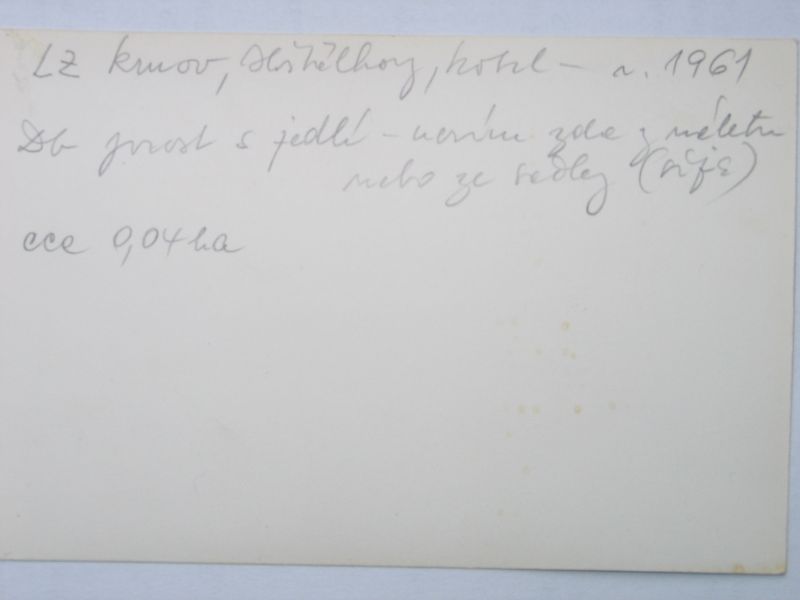 LZ Krnov, Hošťálkovy, kotel – r. 1961
Db porost s jedlí – nevím zda z náletu
nebo ze sadby (síje)
cca 0,04 ha